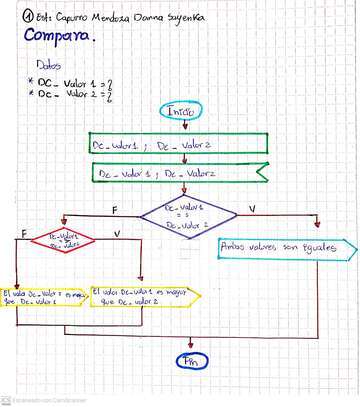 ① Est: Capurro Mendoza Danna Sayenka
Compara.
Datos
* DC_ Valor 1 = ?
* DC_ Valor 2 = ?
Inicio
Dc_valor1 ; Dc_Valor2
Dc_valor1 ; Dc_Valor2
F
V
Dc_Valor1
Dc_Valor 2
F
V
Dc_Valor1
Ambos valores son Iguales
El valor Dc_Valor 2 es mayor
que Dc_valor1
El valor Dc_Valor1 es mayor
que Dc_valor2
Fin
Escaneado con CamScanner